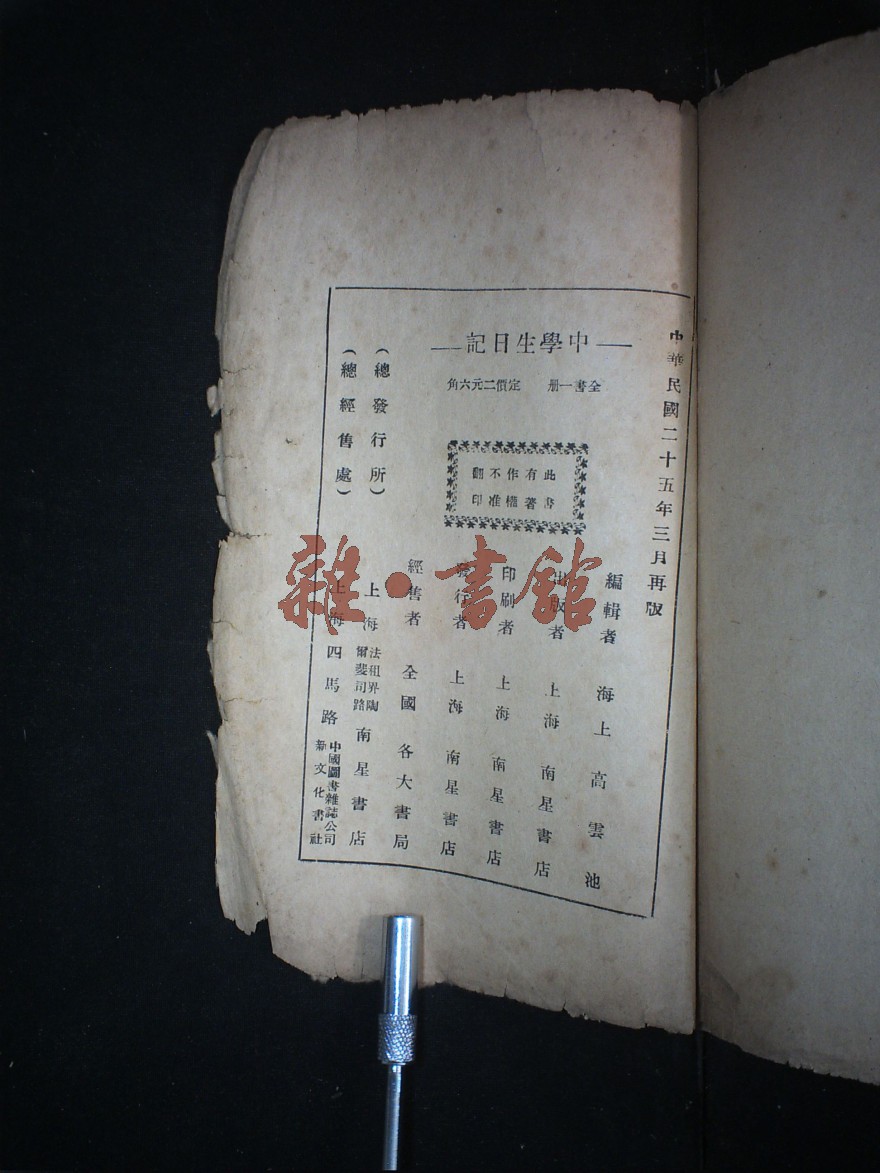 中華民國二十五年三月再版
中學生日記
全書一册　定價二元六角
此書
有著
作權
不准
翻印
編輯者　海上高雲池
出版者　上海南星書店
印刷者　上海南星書店
發行者　上海南星書店
經售者　全國各大書局
（總發行所）　上海法租界陶爾斐司路南星書店
（總經售處）　上海四馬路中國圖書雜誌公司
新文化書社
雜·書館